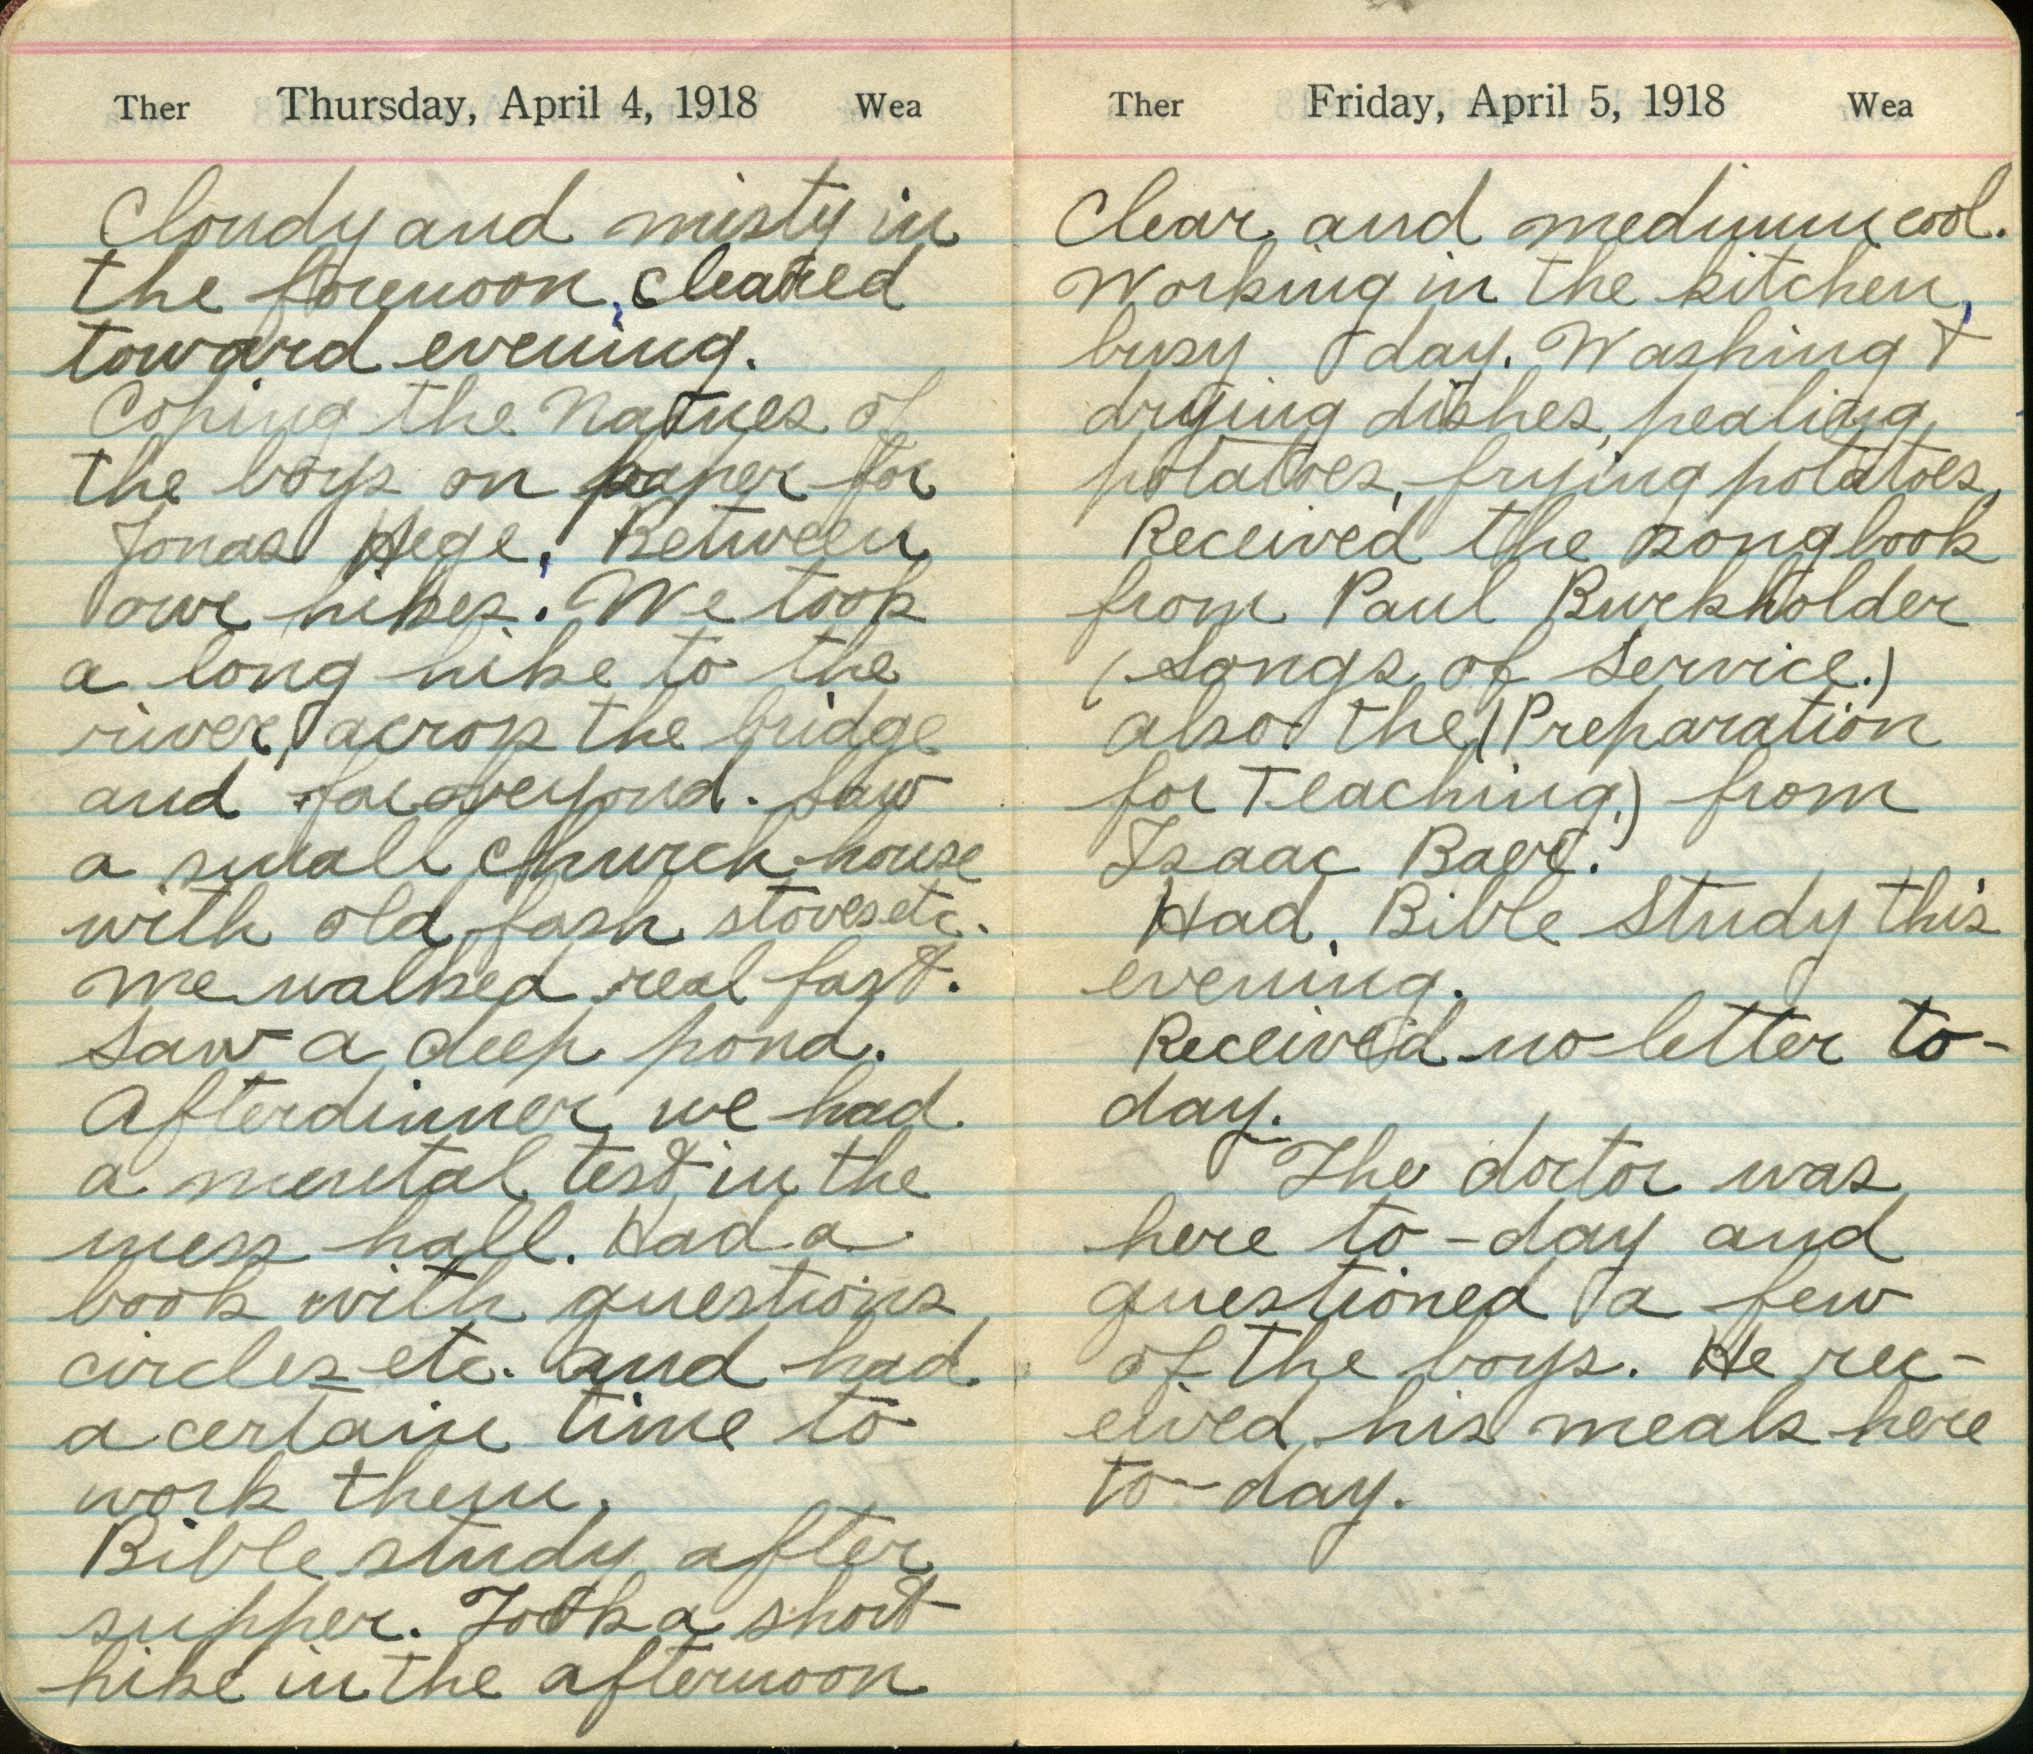 Ther Thursday, April 4, 1918 Wea
Cloudy and misty in
the forenoon, cleared
toward evening.
Coping the Names of
the boys on paper for
Jonas Hege, Between
our hikes. We took
a long hike to the
river, across the bridge
and far beyond. Saw
a small church house
with old fash stoves etc.
We walked real fast.
Saw a deep pond.
After dinner we had
a mental test in the
mess hall. Had a
book with questions,
circles etc. and had
a certain time to
work them.
Bible study after
supper. Took a short
hike in the afternoon
Ther Friday, April 5, 1918 Wea
Clear and medium cool.
Working in the kitchen,
busy day. Washing &
drying dishes, pealing
potatoes, frying potatoes,
Received the song book
from Paul Burkholder
(Songs of Service.)
also the (Preparation
for Teaching.) from
Isaac Baer.
Had Bible Study this
evening.
Received no letter to-
day.
The doctor was
here to-day and
questioned a few
of the boys. He rec-
eived his meals here
to-day.